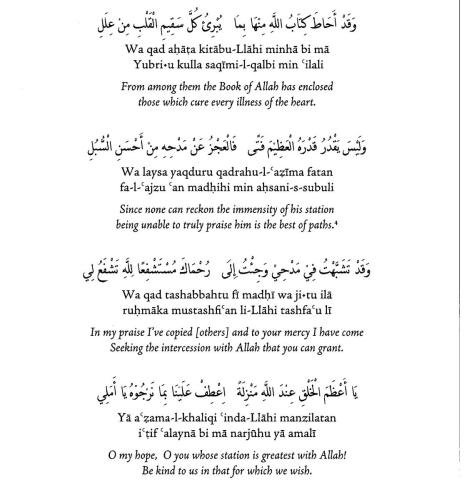 وَقَدْ أَحَاطَ كِتَابُ اللَّهِ مِنْهَا بِمَا يُبْرِئُ كُلَّ سَقِيمِ الْقَلْبِ مِن عِلَلِ
Wa qad aḥāṭa kitābu-Llāhi minhā bi mā
Yubri•u kulla saqīmi-l-qalbi min ʿilali
From among them the Book of Allah has enclosed
those which cure every illness of the heart.
وَلَيْسَ يَقْدُرُ قَدْرَهُ الْعَظِيْمَ فَتًى فَالْعَجْزُ عَنْ مَدْحِهِ مِنْ أَحْسَنِ السُّبُلِ
Wa laysa yaqduru qadrahu-l-ʿaẓīma fatan
fa-l-ʿajzu ʿan madḥihi min aḥsani-s-subuli
Since none can reckon the immensity of his station
being unable to truly praise him is the best of paths.⁴
وَقَدْ تَشَبَّهْتُ فِيْ مَدْحِيْ وَجِئْتُ إِلَى رُحْمَاكَ مُسْتَشْفِعًا لِلَّهِ تَشْفَعُ لِي
Wa qad tashabbahtu fī madḥī wa ji•tu ilā
ruḥmāka mustashfiʿan li-Llāhi tashfaʿu lī
In my praise I've copied [others] and to your mercy I have come
Seeking the intercession with Allah that you can grant.
يَا أَعْظَمَ الْخَلْقِ عِنْدَ اللَّهِ مَنْزِلَةً اِعْطِفْ عَلَيْنَا بِمَا نَرْجُوْهُ يَا أَمَلِي
Yā aʿẓama-l-khaliqi ʿinda-Llāhi manzilatan
iʿṭif ʿalaynā bi mā narjūhu yā amalī
O my hope, O you whose station is greatest with Allah!
Be kind to us in that for which we wish.